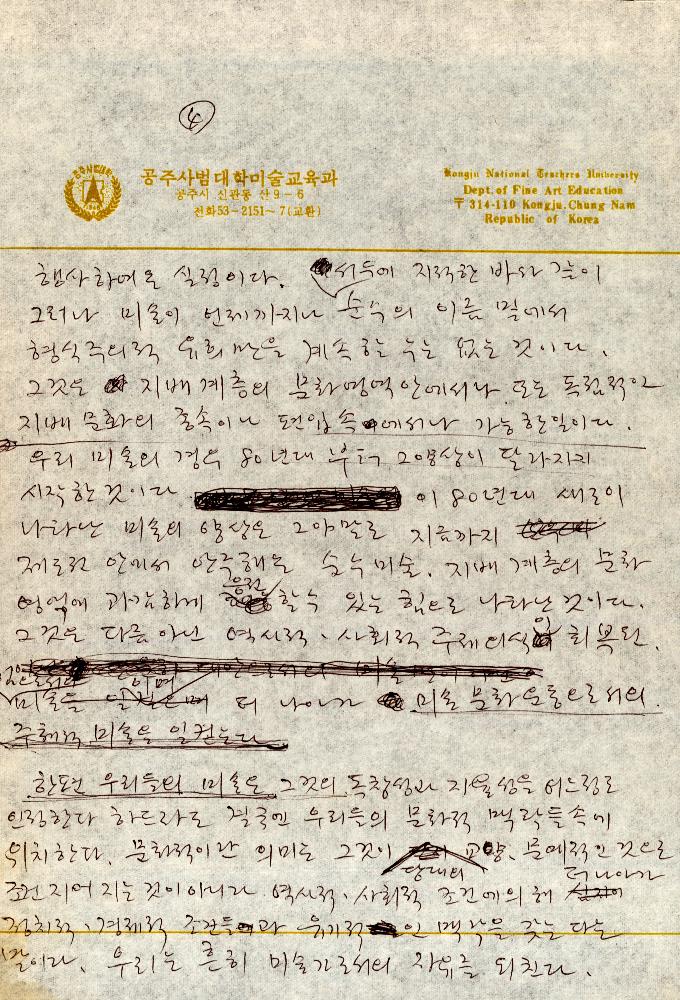 ④
공주사범대학미술교육과
공주시 신관동 산 9-6
전화53-2151~7(교환)
Kongju National Teachers University
Dept. of Fine Art Education
〒 314-110 Kongju. Chung Nam
Republic of Korea
행사하여 온 실정이다. 서두에 지적한 바와 같이
그러나 미술이 언제까지나 순수의 이름 밑에서
형식주의적 유희만을 계속할 수는 없는 것이다.
그것은 지배계층의 문화영역 안에서나 또는 독립적인
지배문화의 종속이나 편입 속에서나 가능한 일이다.
우리 미술의 경우 80년대 부터 그 양상이 달라지기
시작한 것이다 이 80년대 새로이
나타난 미술의 양상은 그야말로 지금까지
제도권 안에서 안주해온 순수미술, 지배계층의 문화
영역에 과감하게 도전할 수 있는 힘으로 나타난 것이다.
그것은 다름 아닌 역사적, 사회적 주체의식이 회복된,
미술을 더 나아가 미술 문화운동으로서의
주체적 미술을 일컫는다
한편 우리들의 미술은 그것의 독창성과 자율성을 어느정도
인정한다 하드라도 결국엔 우리들의 문화적 맥락들 속에
위치한다. 문화적이란 의미는 그것이 당대의 교양, 문예적인 것으로
조건 지어 지는 것이 아니라 역사적, 사회적 조건에 의해 더 나아가
정치적, 경제적 조건들과 유기적인 맥락을 갖는다는
말이다. 우리는 흔히 미술가로서의 자유를 외친다.